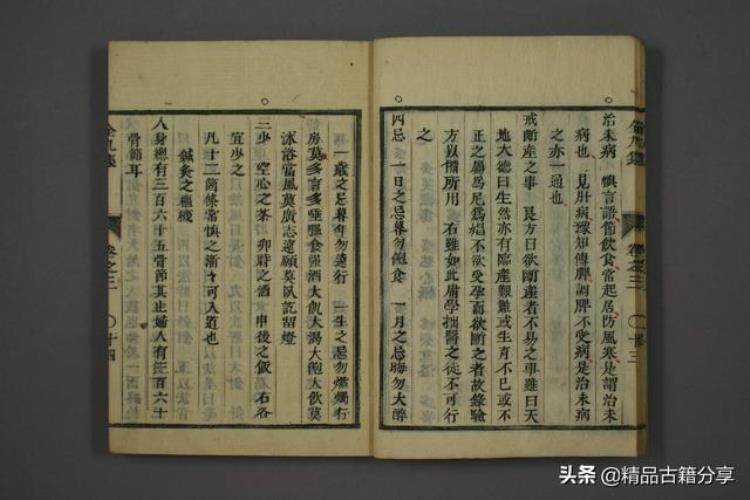 治未病 慎言語節飲食常起居防風寒是謂治未
病也 見肝病豫知傳脾調脾不受病是治未病
之亦一通也
戒斷産之事 良方曰欲斷産者不易之事雖曰天
地大德曰生然亦有臨産艱難或生育不已或不
正之屬爲尼爲娼不欲受孕而欲斷之者故錄驗
方以備所用 右雖如此庸學拙醫之徒不可行
之
四忌 一日之忌暮勿飽食 一月之忌晦勿大醉
卷之三 〇十三
一歲之忌暮年勿遠行 一生之忌勿燃燭行
房莫多言多睡強食強酒大飢大渴大飽大飲莫
沐浴當風莫廣志遠願莫臥訖留燈
三少 空心之茶 卯時之酒 申後之飯 右各
宜少之
凡十二箇條常慎之漸々可入道也
鍼灸之樞機
人身總有三百六十五骨節其止婦人有三百六十
骨節耳
卷之三 〇十四
头条 @精品古籍分享